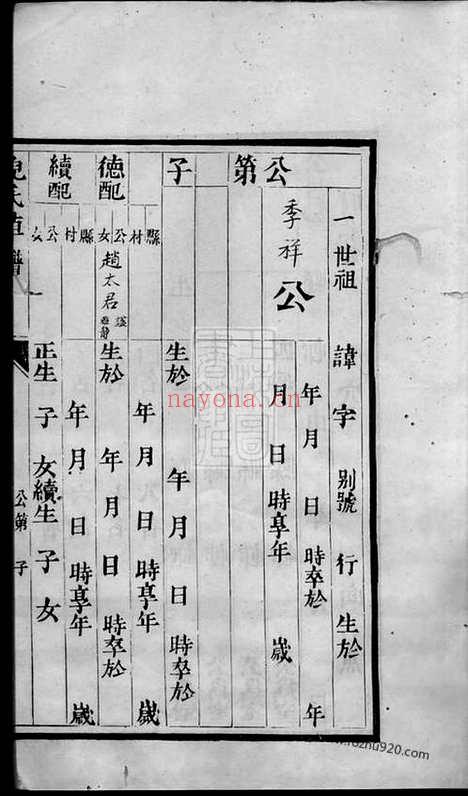 一世祖 諱 字 别號 行 生於
年 月 日 時卒於 年
季祥公
月 日 時享年 歲
公第 子
生於 年 月 日 時卒於
縣 村
年 月 日 時享年 歲
德配
公女 趙太君
生於 年 月 日 時卒於
縣 村
年 月 日 時享年 歲
續配
公女
正生 子 女 續生 子 女
公第 子
氏 譜
nayona.cn